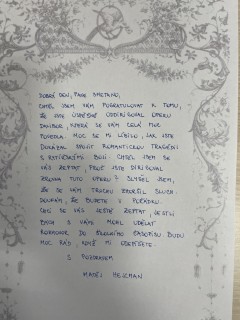 DOBRÝ DEN, PANE SMETANO,
CHTĚL JSEM VÁM POGRATULOVAT K TOMU,
ŽE JSTE ÚSPĚŠNĚ ODDIRIGOVAL OPERU
DALIBOR, KTERÁ SE VÁM CELÁ MOC
POVEDLA. MOC SE MI LÍBILO, JAK JSTE
DOKÁZAL SPOJIT ROMANTICKOU TRAGÉDII
S RYTÍŘSKÝMI BOJI. CHTĚL JSEM SE
VÁS ZEPTAT, PROČ JSTE DIRIGOVAL
ZROVNA TUTO OPERU? SLYŠEL JSEM,
ŽE SE VÁM TROCHU ZHORŠIL SLUCH.
DOUFÁM, ŽE BUDETE V POŘÁDKU.
CHCI SE VÁS JEŠTĚ ZEPTAT, JESTLI
BYCH S VÁMI MOHL UDĚLAT
ROZHOVOR DO ČASOPISU. BUDU
MOC RÁD, KDYŽ MI ODEPÍŠETE.
S POZDRAVEM
MATĚJ